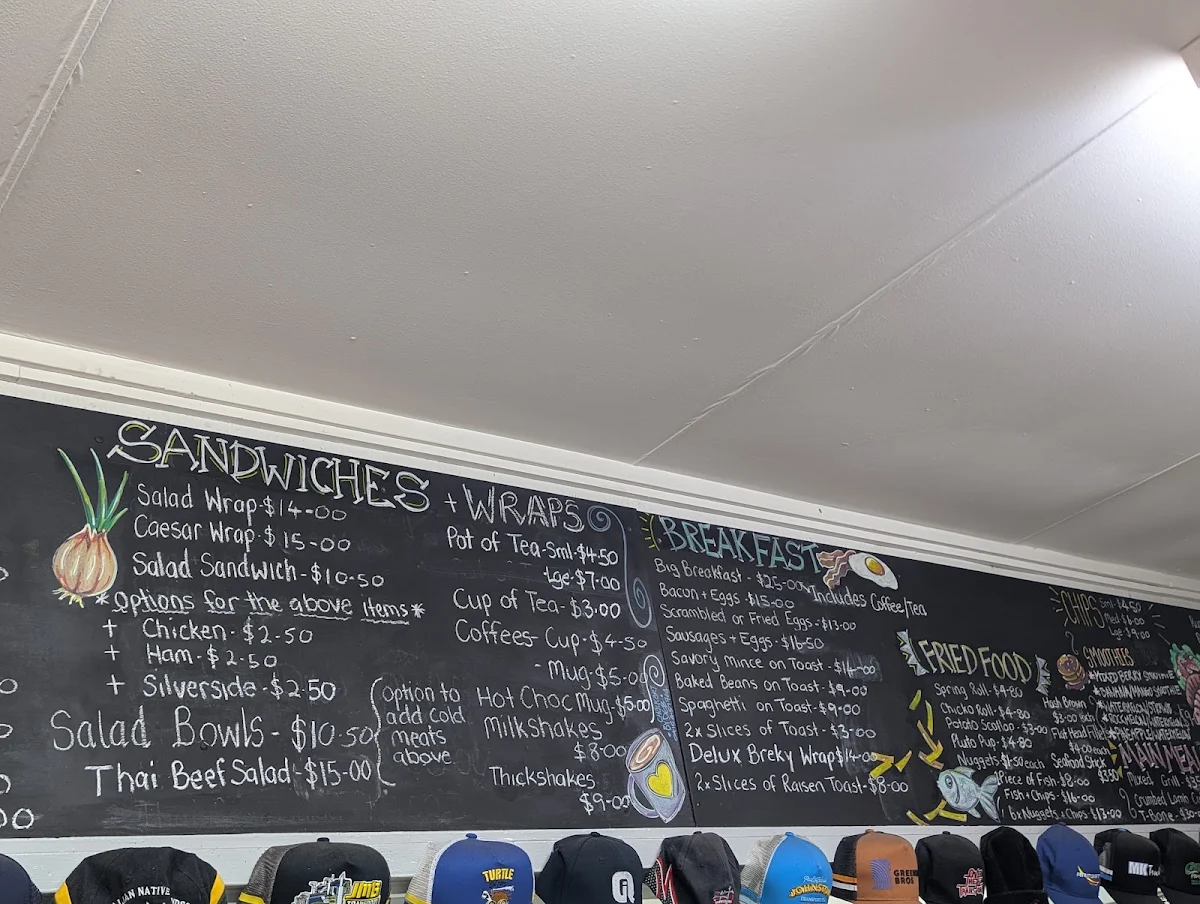 SANDWICHES + WRAPS
Salad Wrap-$14-00
Caesar Wrap-$15-00
Salad Sandwich-$10-50
*Options for the above items*
+ Chicken-$2-50
+ Ham-$2-50
+ Silverside-$2-50
Salad Bowls-$10-50
Thai Beef Salad-$15-00
option to
add cold
meats
above
Pot of Tea-Sml-$4-50
Lge-$7-00
Cup of Tea-$3-00
Coffees-Cup-$4-50
-Mug-$5-00
Hot Choc Mug-$5-00
Milkshakes
$8-00
Thickshakes
$9-00
BREAKFAST
Big Breakfast-$25-00
Includes Coffee/Tea
Bacon+Eggs $15-00
Scrambled or Fried Eggs-$13-00
Sausages+Eggs-$16-50
Savory mince on Toast-$14-00
Baked Beans on Toast-$9-00
Spaghetti on Toast-$9-00
2x Slices of Toast-$3-00
Delux Breky Wrap $14-00
2x Slices of Raisen Toast-$8-00
FRIED FOOD
Spring Roll-$4-80
Chicko Roll-$4-80
Potato Scallop-$3-00
Pluto Pup-$4-80
Nuggets-$1-50 each
1Piece of Fish-$8-00
Fish+Chips-$16-00
6xNuggets+Chips-$13-00
Hash Brown
$3-00 each
Flat Head Fillet
$4-00 each
Seafood Stick
$3-50
CHIPS
Sml-$4-50
Med $6-00
Lge-$9-00
SMOOTHIES
Mixed Grill
Crumbed Lamb
T-Bone
TURTLE
JOHNSTON
MK